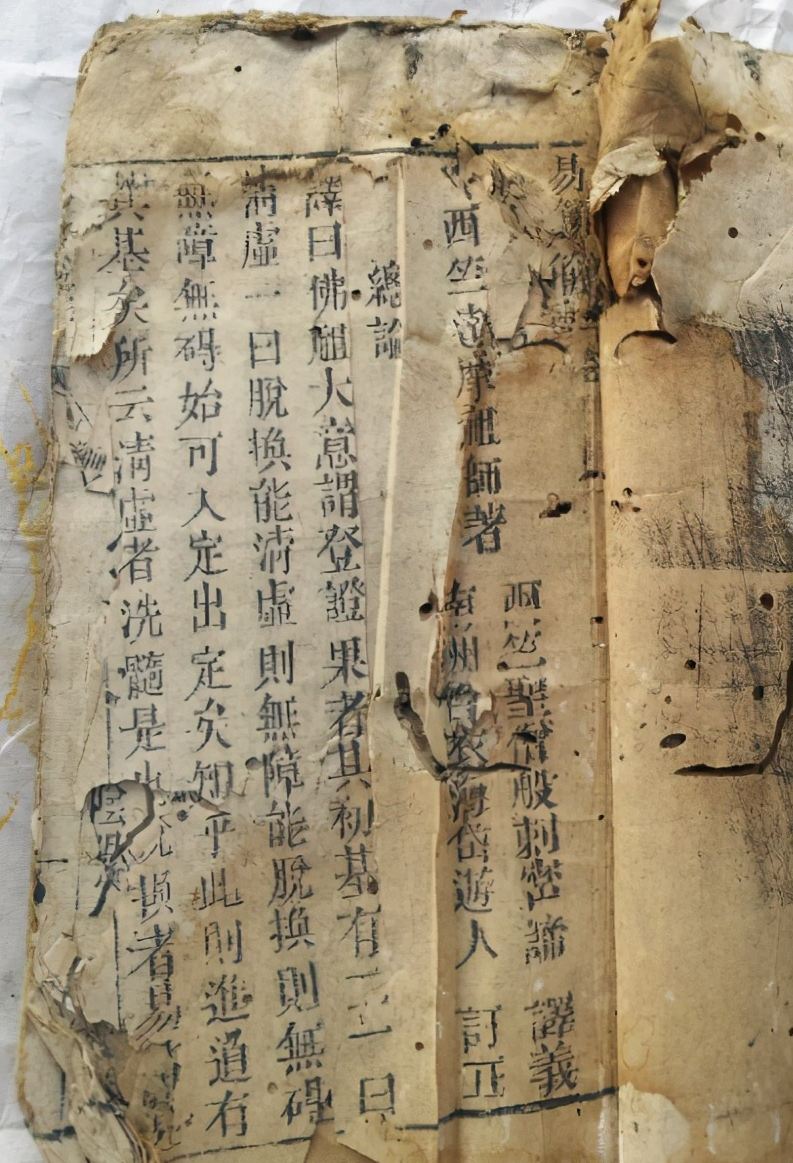 易筋
西竺聖僧般剌密諦 譯義
西竺達摩祖師著
南洲白衣海岱遊人 訂正
總論
譯曰佛祖大意謂登證果者其初基有二一曰
清虛一曰脫換能清虛則無障能脫換則無碍
無障無碍始可入定出定矣知乎此則進道有
其基矣所云清虛者洗髓是也脫換者易筋是